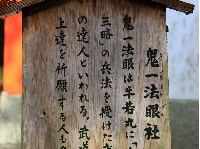 鬼一法眼社
鬼一法眼は牛若丸に「
三略」の兵法を授けた
の達人といわれる。武
上達を祈願する人も